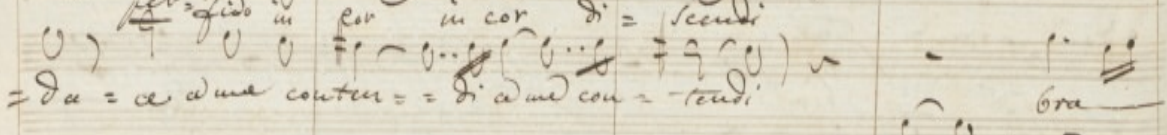 per = fido in cor in cor di = scendi
= da = ce a me conten = = di a me con = tendi bra